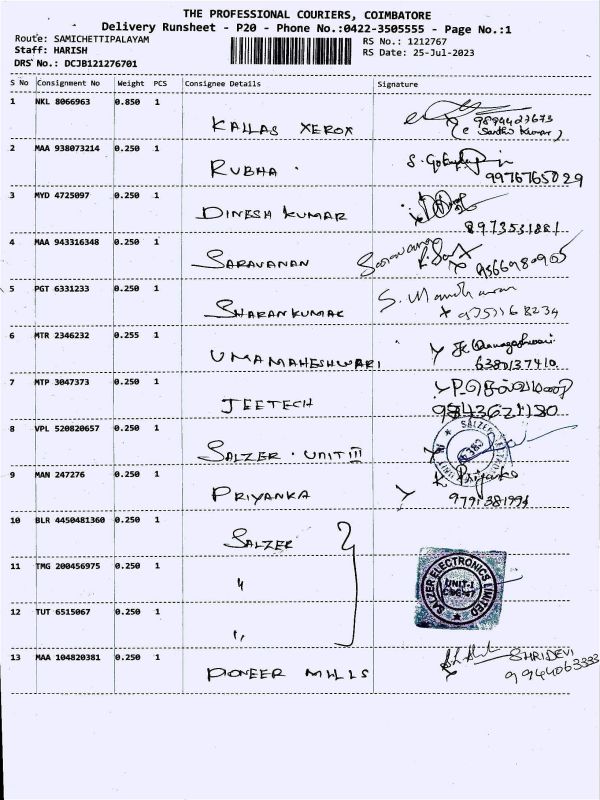 THE PROFESSIONAL COURIERS, COIMBATORE
Delivery Runsheet - P20 - Phone No.:0422-3505555 - Page No.:1
Route: SAMICHETTIPALAYAM
RS No.: 1212767
Staff: HARISH
RS Date: 25-Jul-2023
DRS No.: DCJB121276701
S No Consignment No Weight PCS Consignee Details Signature
1 NKL 8066963 0.850 1
KALLAS XEROX
2 MAA 938073214 0.250 1
RUBHA 9976765029
3 MYD 4725097 0.250 1
DINESH KUMAR 8973531881
4 MAA 943316348 0.250 1
SARAVANAN Saravanan
5 PGT 6331233 0.250 1
SHARAN KUMAR S.
6 MTR 2346232 0.255 1
UMAMAHESHWARI 6380137410
7 MTP 3047373 0.250 1
JEETECH 9843621180
8 VPL 520820657 0.250 1
SALZER UNIT III
SALZER
9 MAN 247276 0.250 1
PRIYANKA K. Priyanka
9791381994
10 BLR 4450481360 0.250 1
SALZER
11 TMG 200456975 0.250 1
"
SALZER ELECTRONICS LIMITED
UNIT-I
CBE-47
12 TUT 6515067 0.250 1
"
13 MAA 104820381 0.250 1
PIONEER MILLS SHRIDEVI
9944063333